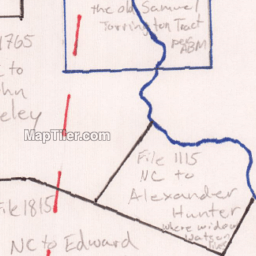 the old Samuel
Torrington Tract
per
ABM
1765
to
hn
eley
MapTiler.com
File 1115
NC to
Alexander
Hunter
where widow
Watson
File 1815
NC to Edward